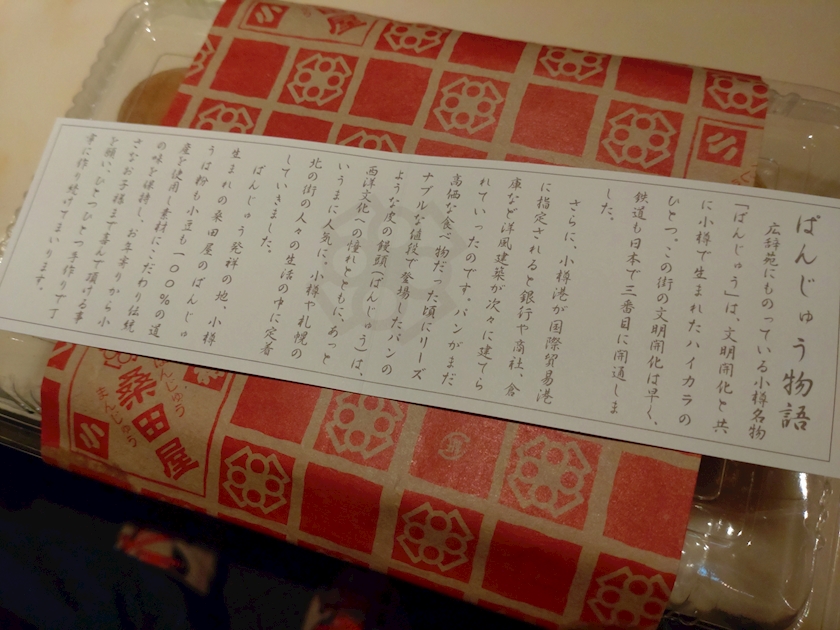 ぱんじゅう物語
広辞苑にものっている小樽名物
「ぱんじゅう」は、文明開化と共
に小樽で生まれたハイカラの
ひとつ。この街の文明開化は早く、
鉄道も日本で三番目に開通しま
した。
さらに、小樽港が国際貿易港
に指定されると銀行や商社、倉
庫など洋風建築が次々に建てら
れていったのです。パンがまだ
高価な食べ物だった頃にリーズ
ナブルな値段で登場したパンの
ような皮の饅頭(ぱんじゅう)は、
西洋文化への憧れとともに、あっと
いうまに人気に。小樽や札幌の
北の街の人々の生活の中に定着
していきました。
ぱんじゅう発祥の地、小樽
生まれの桑田屋のぱんじゅ
うは粉も小豆も一〇〇%の道
産を使用し素材にこだわり伝統
の味を保持し、お年寄りから小
さなお子様まで喜んで頂ける事
を願い、ひとつひとつ手作りで丁
寧に作り続けてまいります。
ぱんじゅう
桑田屋
まんじゅう